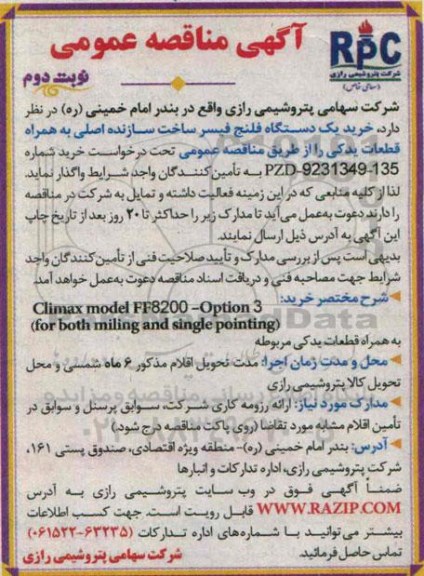 آگهی مناقصه عمومی
RPC
شرکت پتروشیمی رازی
(سهامی خاص)
نوبت دوم
شرکت سهامی پتروشیمی رازی واقع در بندر امام خمینی (ره) در نظر
دارد، خرید یک دستگاه فلنج فیسر ساخت سازنده اصلی به همراه
قطعات یدکی را از طریق مناقصه عمومی تحت درخواست خرید شماره
PZD-9231349-135 به تأمین کنندگان واجد شرایط واگذار نماید.
لذا از کلیه منابعی که در این زمینه فعالیت داشته و تمایل به شرکت در مناقصه
را دارند دعوت به‌عمل می‌آید تا مدارک زیر را حداکثر تا ۲۰ روز بعد از تاریخ چاپ
این آگهی به آدرس ذیل ارسال نمایند.
بدیهی است پس از بررسی مدارک و تأیید صلاحیت فنی از تأمین‌کنندگان واجد
شرایط جهت مصاحبه فنی و دریافت اسناد مناقصه دعوت به‌عمل خواهد آمد.
شرح مختصر خرید:
Climax model FF8200 –Option 3
(for both miling and single pointing)
به همراه قطعات یدکی مربوطه
محل و مدت زمان اجرا: مدت تحویل اقلام مذکور ۶ ماه شمسی و محل
تحویل کالا پتروشیمی رازی
مدارک مورد نیاز: ارائه رزومه کاری شرکت، سوابق پرسنل و سوابق در
تأمین اقلام مشابه مورد تقاضا (روی پاکت مناقصه درج شود.)
آدرس: بندر امام خمینی (ره)- منطقه ویژه اقتصادی، صندوق پستی ۱۶۱،
شرکت پتروشیمی رازی، اداره تدارکات و انبارها
ضمناً آگهی فوق در وب سایت پتروشیمی رازی به آدرس
WWW.RAZIP.COM قابل رویت است. جهت کسب اطلاعات
بیشتر می‌توانید با شماره‌های اداره تدارکات (۶۳۲۳۵-۰۶۱۵۲۲)
تماس حاصل فرمائید.
شرکت سهامی پتروشیمی رازی